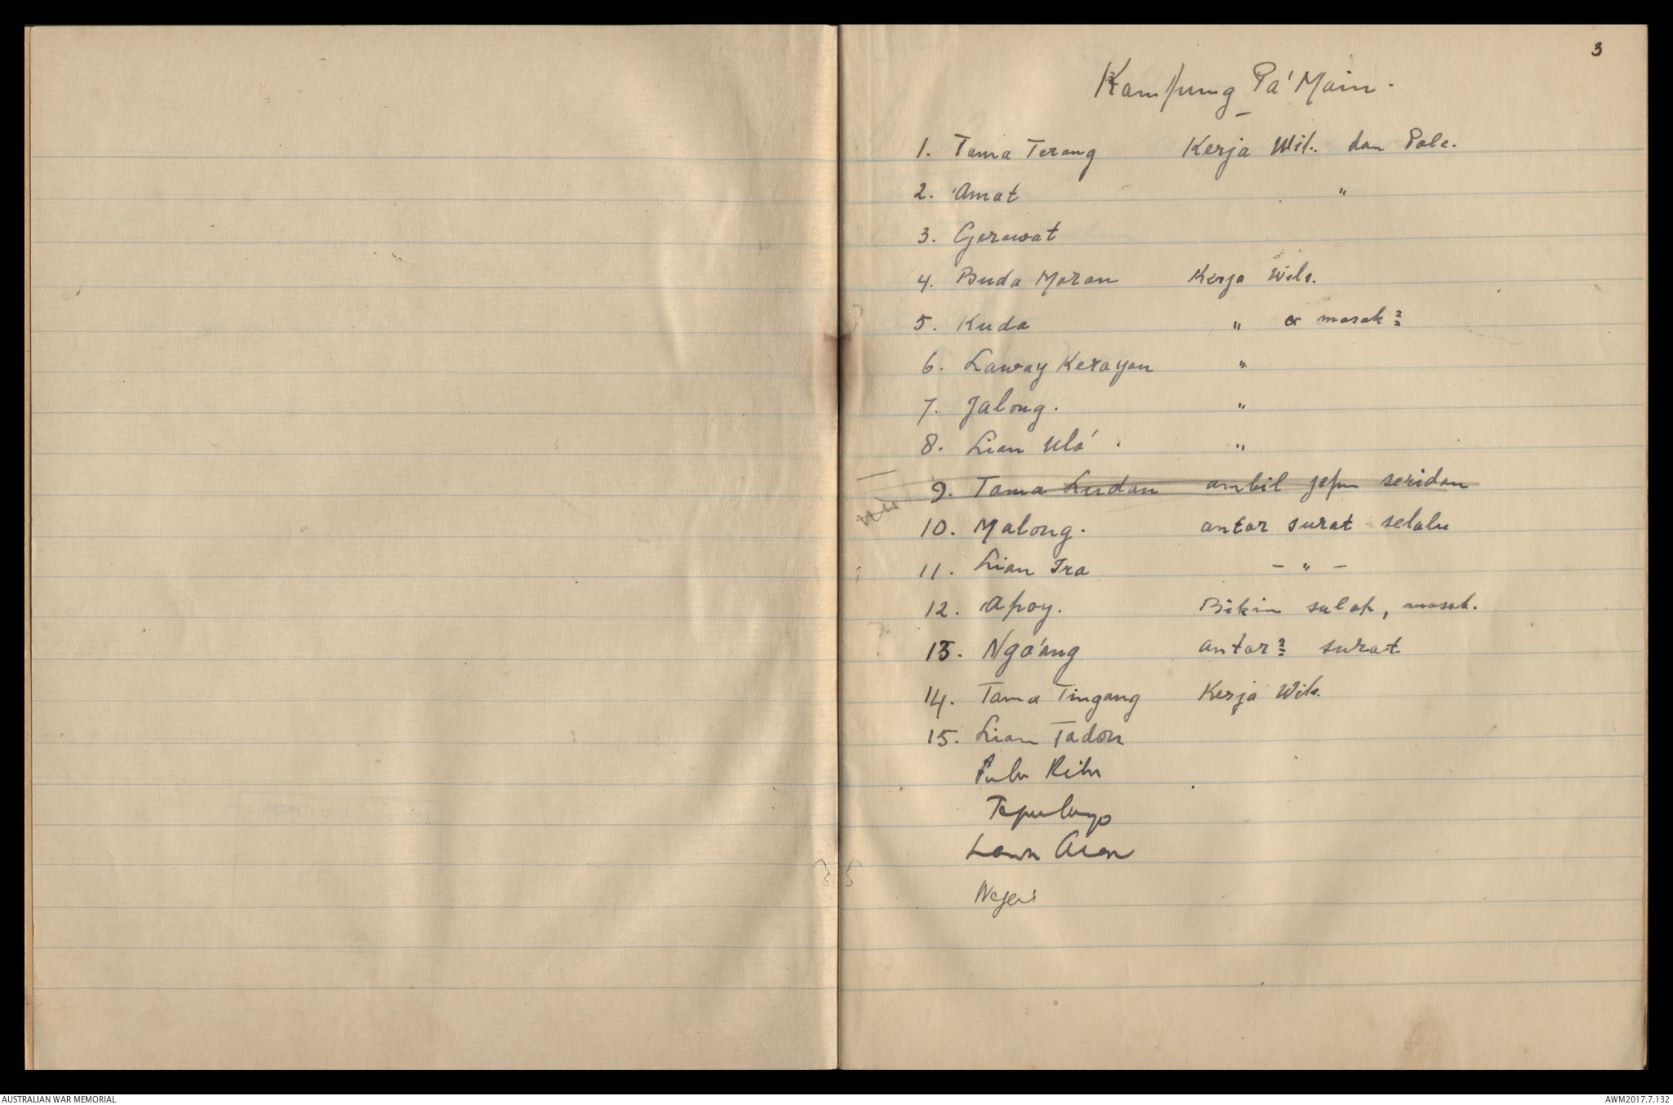 3
Kampung Pa' Main.
1. Tama Terang Kerja Wil. dan Pole.
2. Amat "
3. Gerawat
4. Buda Maran Kerja Wils.
5. Kuda " & masak ?
6. Laway Kerayan "
7. Jalong. "
8. Lian Ula' "
9. Tama Ludan ambil Jepun seridan
10. Malong. antar surat selalu
11. Lian Tra - " -
12. Apoy. Bikin sulap, masak.
13. Nga'ang antar ? surat
14. Tama Tingang Kerja Wils.
15. Lian Tadon
Ribu
Aran
Negeri
AUSTRALIAN WAR MEMORIAL
AWM2017.7.132